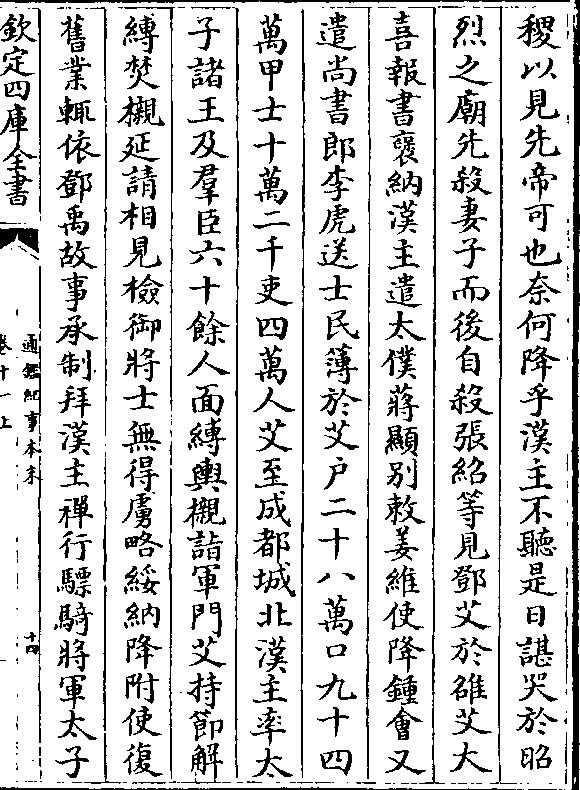 稷以見先帝可也奈何降乎漢主不聽是日諶哭於昭
烈之廟先殺妻子而後自殺張紹等見鄧艾於雒艾大
喜報書褒納漢主遣太僕蔣顯别敕姜維使降鍾會又
遣尚書郎李虎送士民簿於艾户二十八萬口九十四
萬甲士十萬二千吏四萬人艾至成都城北漢主率太
子諸王及羣臣六十餘人面縛輿櫬詣軍門艾持節解
縛焚櫬延請相見檢御將士無得虜略綏納降附使復
舊業輒依鄧禹故事承制拜漢主禪行驃騎將軍太子
欽定四庫全書
通鑑紀事本末
卷十一上
十四